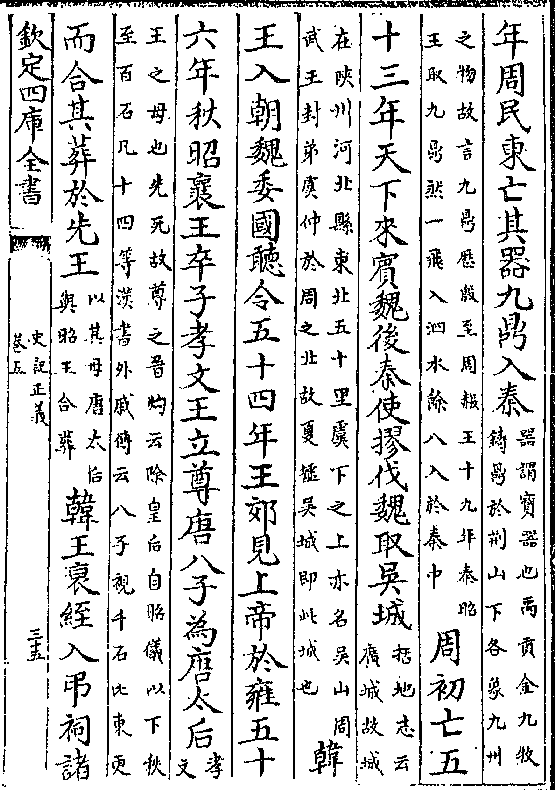 年周民東亡其器九鼎入秦
器謂寶器也禹貢金九牧
鑄鼎於荆山下各象九州
之物故言九鼎歷殷至周赧王十九非秦昭
王取九鼎其一飛入泗水餘八入於秦中
周初亡五
十三年天下來賓魏後秦使摎伐魏取吳城
括地志云
虞城故城
在陜州河北縣東北五十里虞下之上亦名吳山周
武王封弟虞仲於周之北故夏墟吳城即此城也
韓
王入朝魏委國聽令五十四年王郊見上帝於雍五十
六年秋昭襄王卒子孝文王立尊唐八子為唐太后
孝
文
王之母也先死故尊之晉灼云除皇后自昭儀以下秩
至百石凡十四等漢書外戚傳云八子視千石比東更
而合其葬於先王
以其母唐太后
與昭王合葬
韓王衰絰入弔祠諸
欽定四庫全書
史記正義
卷五
三五